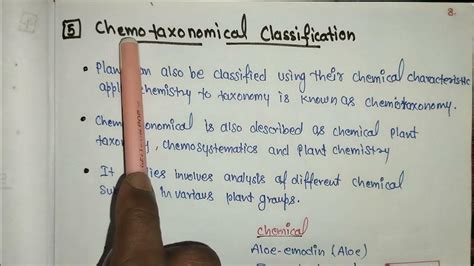 8.
5 Chemotaxonomical Classification
Plan can also be classified using their chemical characteristic
appl chemistry to taxonomy is known as chemotaxonomy.
Chem onomical is also described as chemical plant
taxo y, chemosystematics and plant chemistry
It ies involves analysis of different chemical
su in various plant groups.
chemical
Aloe-emodin (Aloe)